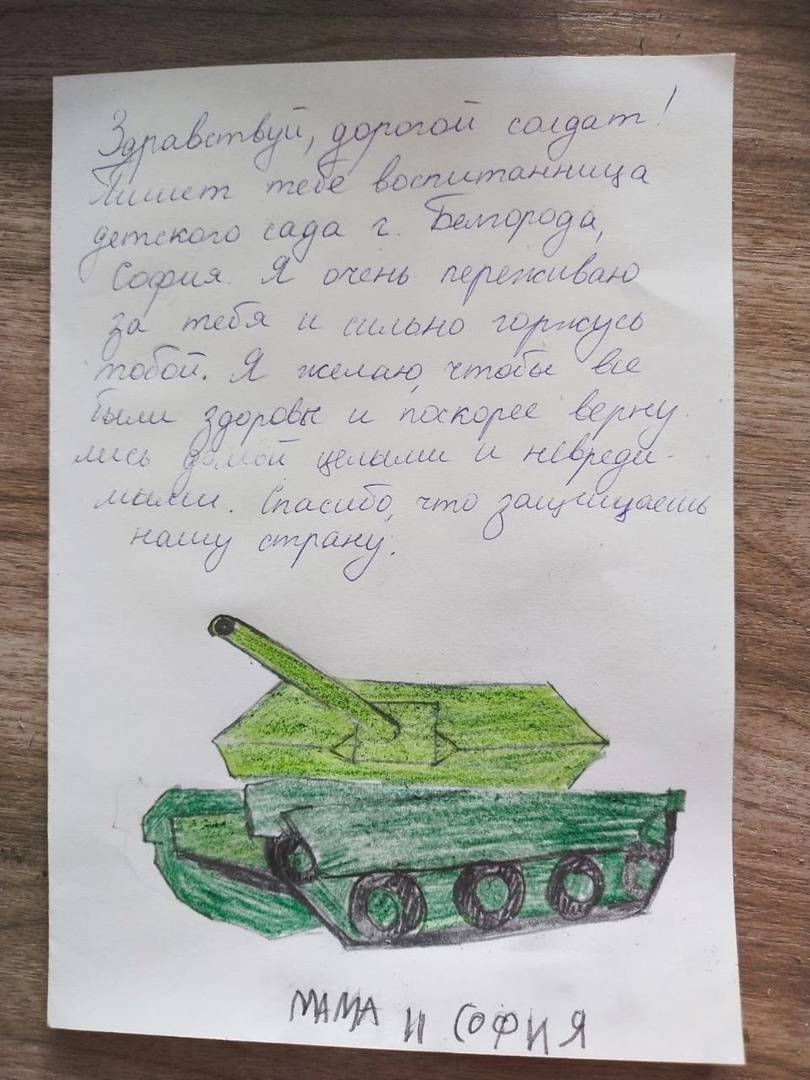 Здравствуй, дорогой солдат!
Пишет тебе воспитанница
детского сада г. Белгорода,
София. Я очень переживаю
за тебя и сильно горжусь
тобой. Я желаю, чтобы все
были здоровы и поскорее верну-
лись домой целыми и невреди-
мыми. Спасибо, что защищаешь
нашу страну.
МАМА И СОФИЯ